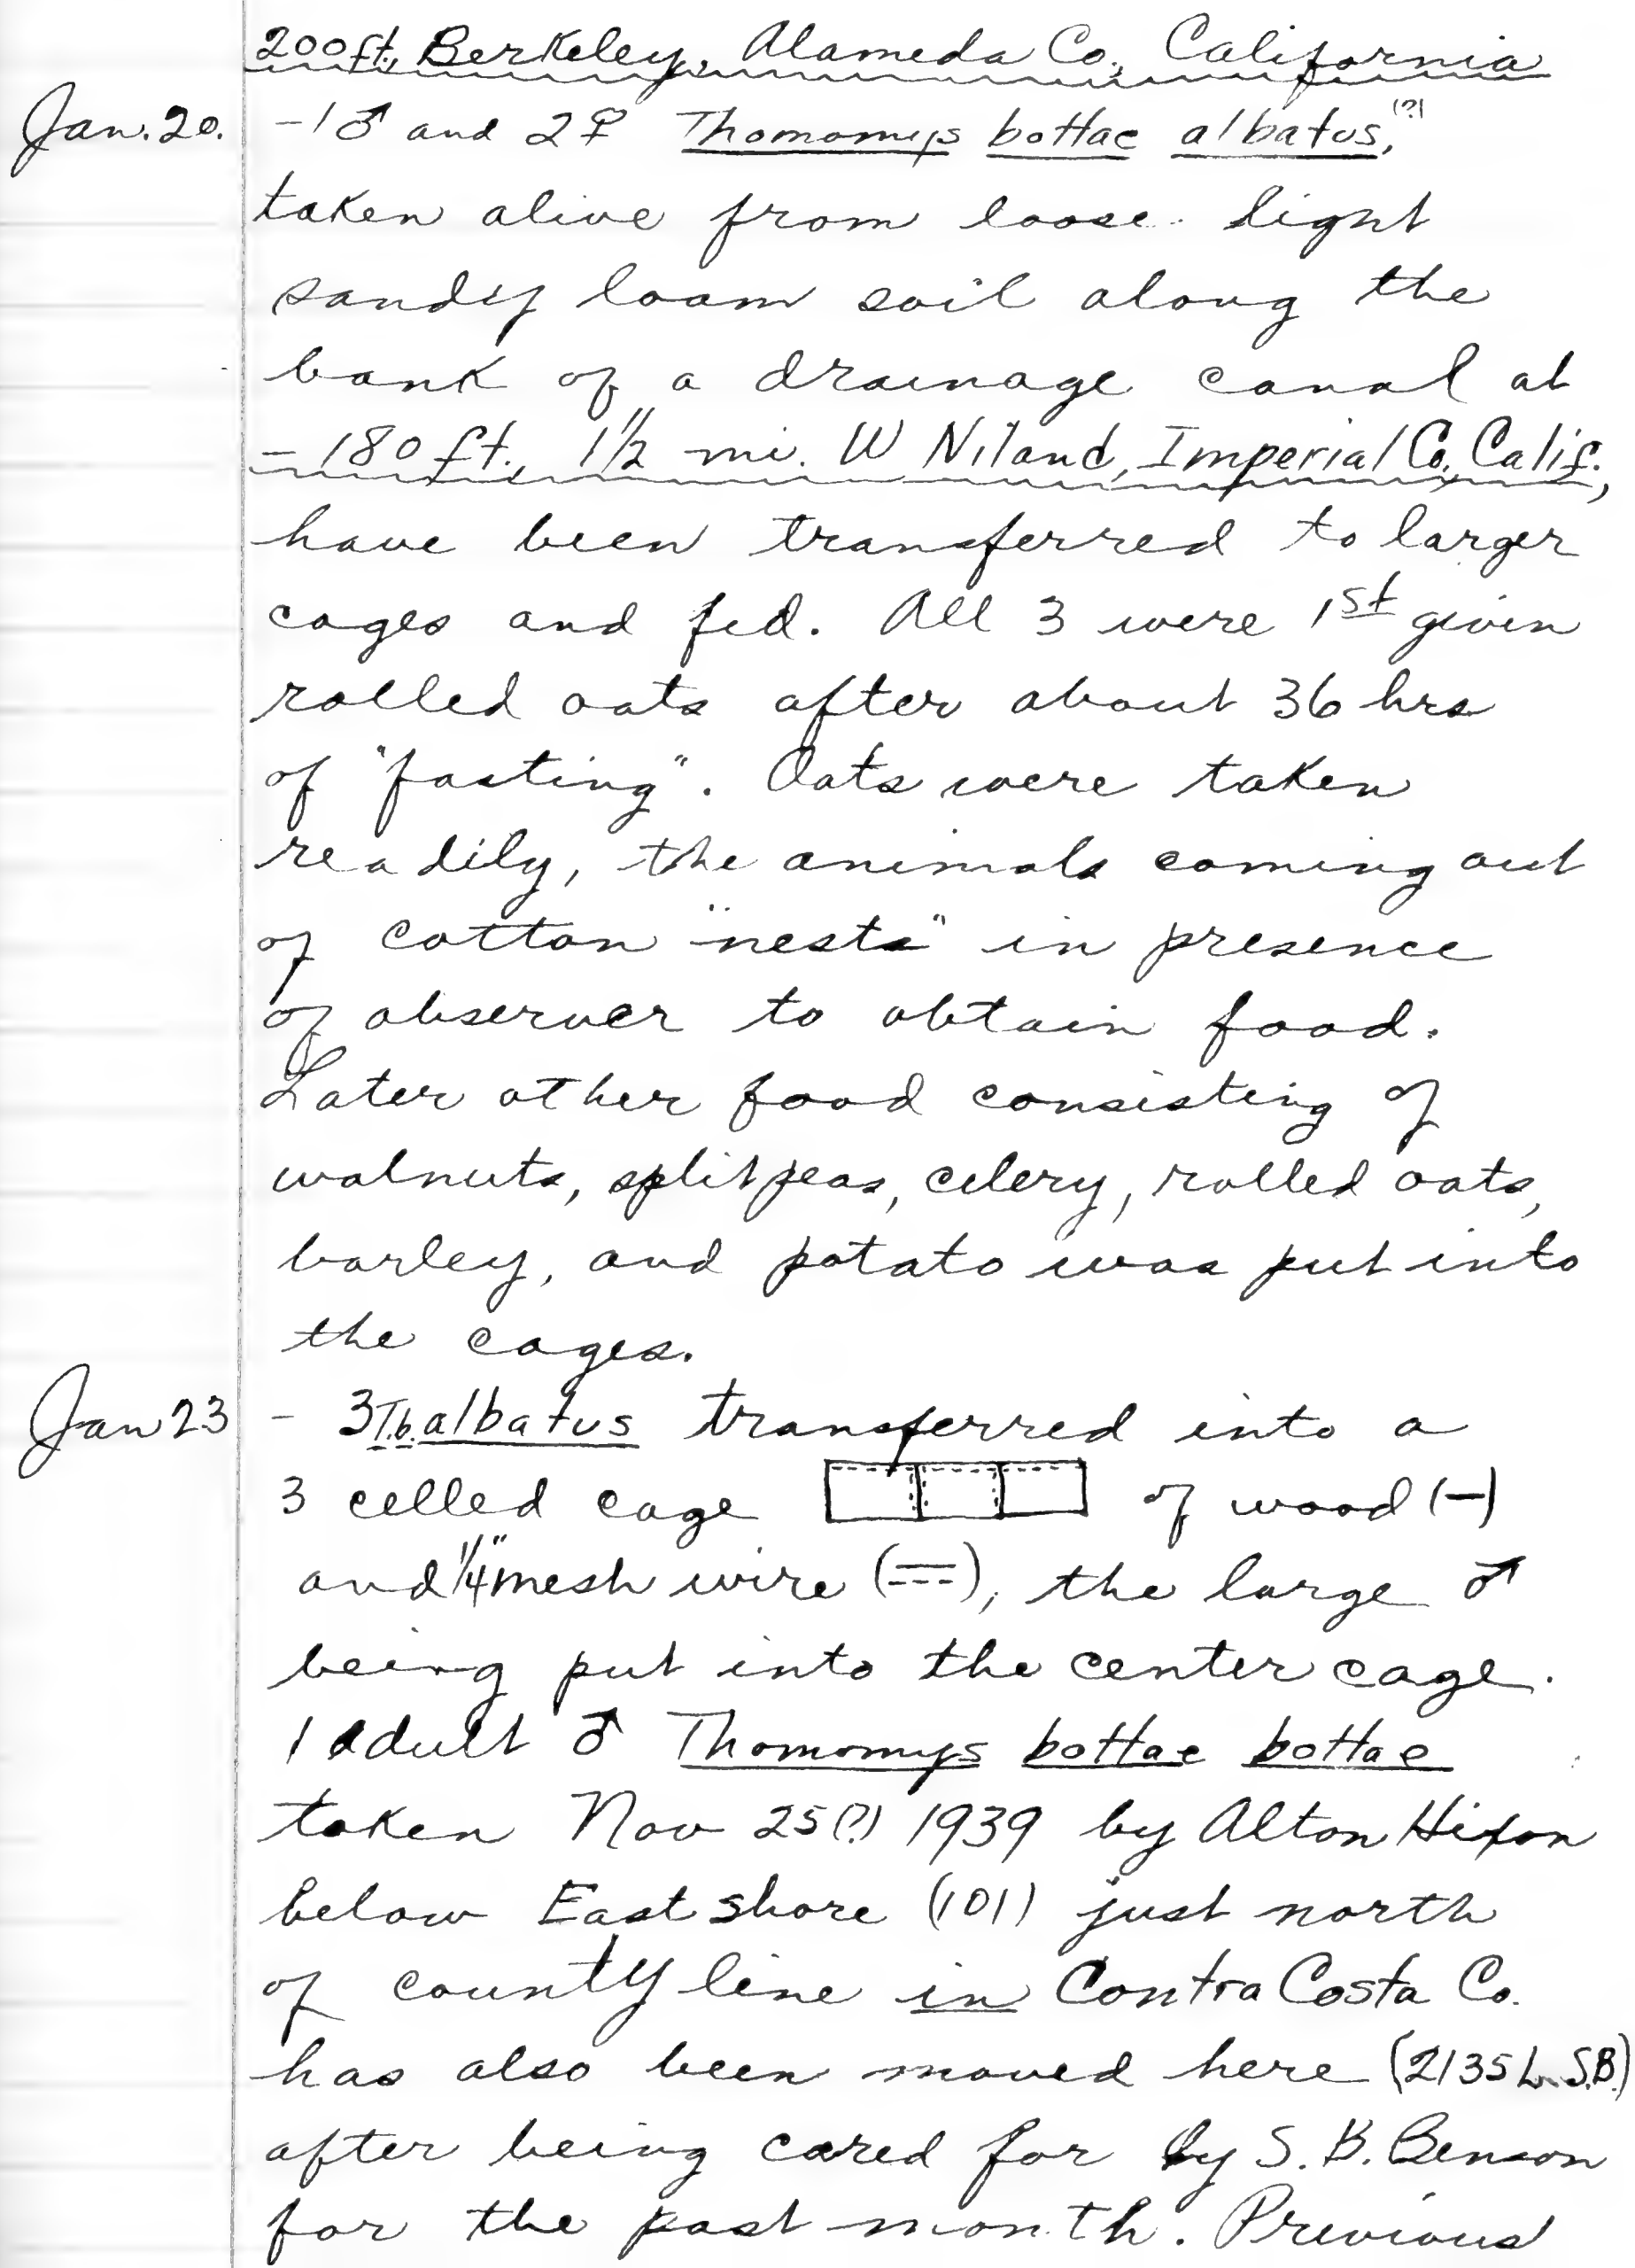 200ft., Berkeley, Alameda Co., California
Jan. 20. - 1 ♂ and 2 ♀ Thomomys bottae albatus, (?)
taken alive from loose light
sandy loam soil along the
bank of a drainage canal at
- 180 ft., 1 1/2 mi. W Niland, Imperial Co., Calif.,
have been transferred to larger
cages and fed. All 3 were 1st given
rolled oats after about 36 hrs
of "fasting". Oats were taken
readily, the animals coming out
of cotton "nests" in presence
of observer to obtain food.
Later other food consisting of
walnuts, split peas, celery, rolled oats,
barley, and potato was put into
the cages.
Jan 23 - 3 T.b. albatus transferred into a
3 celled cage of wood (—)
and 1/4" mesh wire (==-), the large ♂
being put into the center cage.
1 adult ♂ Thomomys bottae bottae
taken Nov 25(?) 1939 by Alton Hixon
below East shore (101) just north
of county line in Contra Costa Co.
has also been moved here (2135 L.S.B.)
after being cared for by S. B. Benson
for the past month. Previous